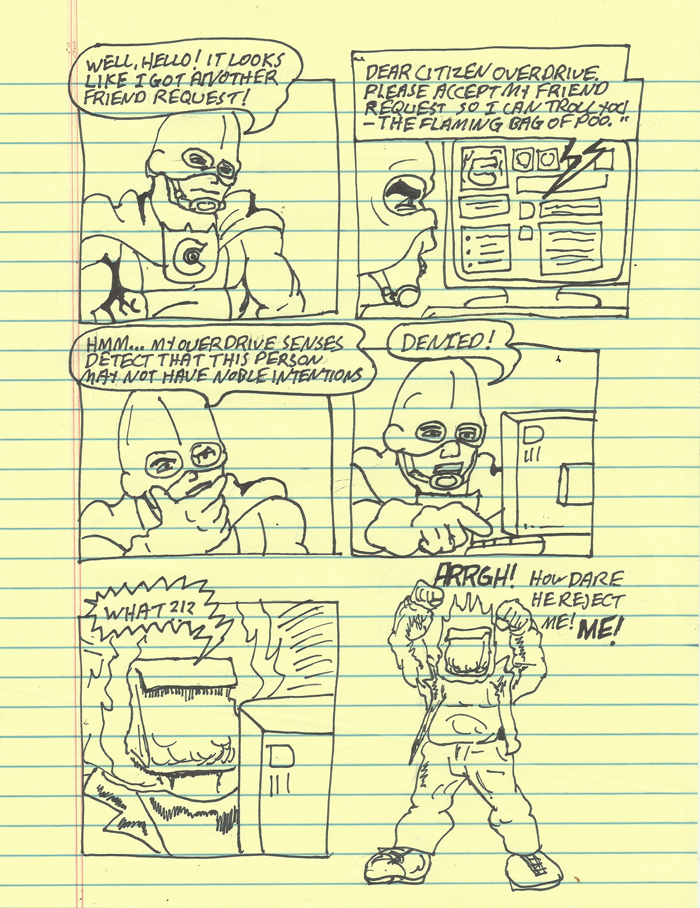 WELL, HELLO! IT LOOKS
LIKE I GOT ANOTHER
FRIEND REQUEST!
"DEAR CITIZEN OVERDRIVE.
PLEASE ACCEPT MY FRIEND
REQUEST SO I CAN TROLL YOU
- THE FLAMING BAG OF POO."
HMM... MY OVERDRIVE SENSES
DETECT THAT THIS PERSON
MAY NOT HAVE NOBLE INTENTIONS
DENIED!
WHAT?!?
ARRGH! HOW DARE
HE REJECT
ME! ME!